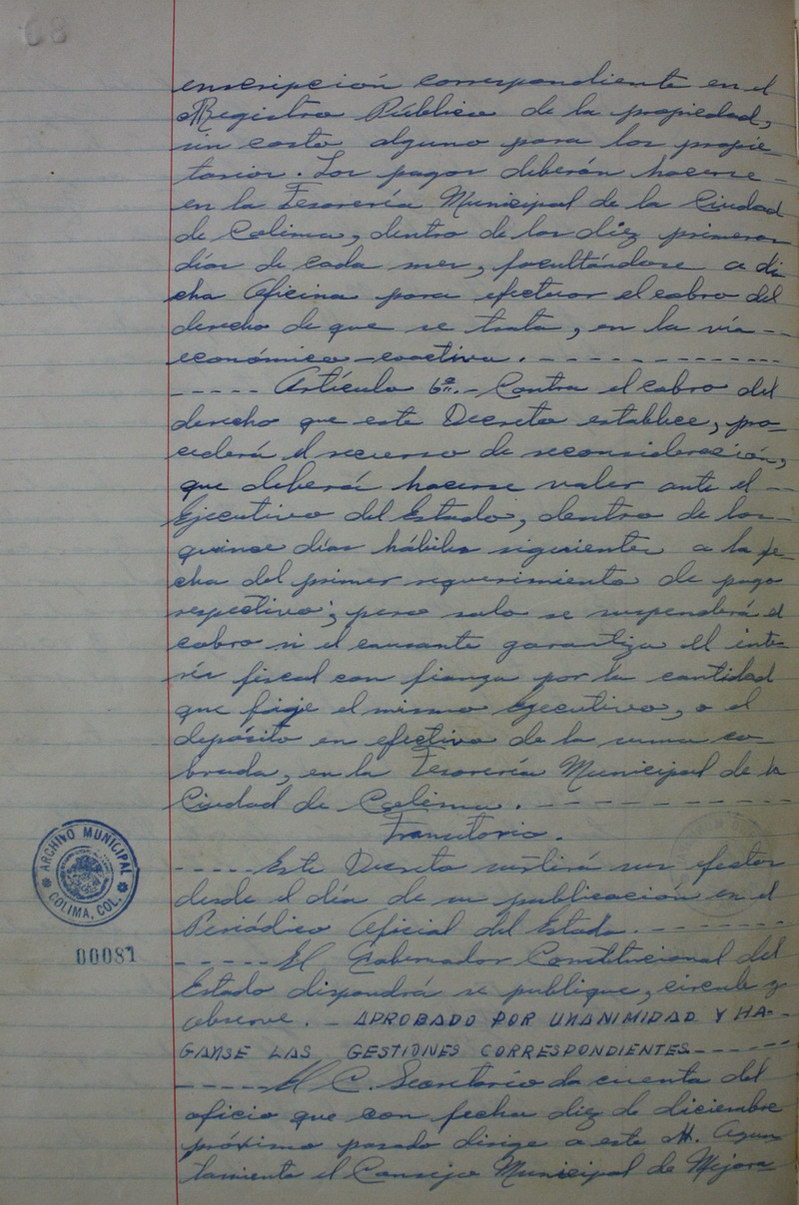 68
enscripción correspondiente en el
Registro Público de la propiedad,
sin costo alguno para los propie-
tarios. Los pagos deberán hacerse -
en la Tesorería Municipal de la Ciudad
de Colima, dentro de los diez primeros
días de cada mes, facultándose a di
cha Oficina para efectuar el cobro del
derecho de que se trata, en la vía --
económico-coactiva. - - - - - - - - - - - - - -
- - - - - Artículo 6º.- Contra el cobro del
derecho que este Decreto establece, pro-
cederá el recurso de reconsideración,
que deberá hacerse valer ante el --
Ejecutivo del Estado, dentro de los -
quince días hábiles siguientes a la fe-
cha del primer requerimiento de pago
respectivo; pero solo se suspenderá el
cobro si el causante garantiza el inte-
rés fiscal con fianza por la cantidad
que fije el mismo Ejecutivo, o el
depósito en efectivo de la suma co-
brada, en la Tesorería Municipal de la
Ciudad de Colima. - - - - - - - - - -
Transitorio.
- - - - - Este Decreto surtirá sus efectos
desde el día de su publicación en el
Periódico Oficial del Estado. - - - - - - -
- - - - - El Gobernador Constitucional del
Estado dispondrá se publique, circule y
observe. - APROBADO POR UNANIMIDAD Y HA-
GANSE LAS GESTIONES CORRESPONDIENTES - - - - -
- - - - - El C. Secretario da cuenta del
oficio que con fecha diez de diciembre
próximo pasado dirige a este H. Ayun
tamiento el Consejo Municipal de Mejora
ARCHIVO MUNICIPAL
COLIMA, COL.
00081